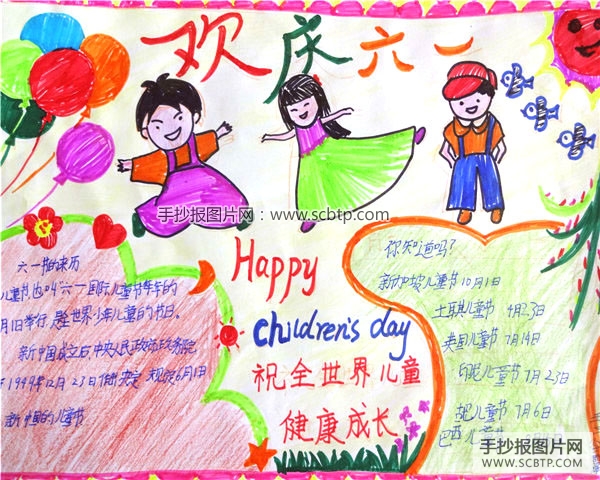 欢庆六一
手抄报图片网：www.scbtp.com
六一的来历
儿童节也叫"六一国际儿童节"每年的
月1日举行 是全世界少年儿童的节日。
新中国成立后中央人民政府政务院
于1949年12月23日做决定 规定6月1日
新中国的儿童节
Happy
children's day
祝全世界儿童
健康成长
你知道吗？
新加坡儿童节10月1日
土耳其儿童节 4月23日
美国儿童节 7月14日
印尼儿童节 7月23日
儿童节 7月6日
巴西儿童节
手抄报图片网
WWW.SCBTP.COM